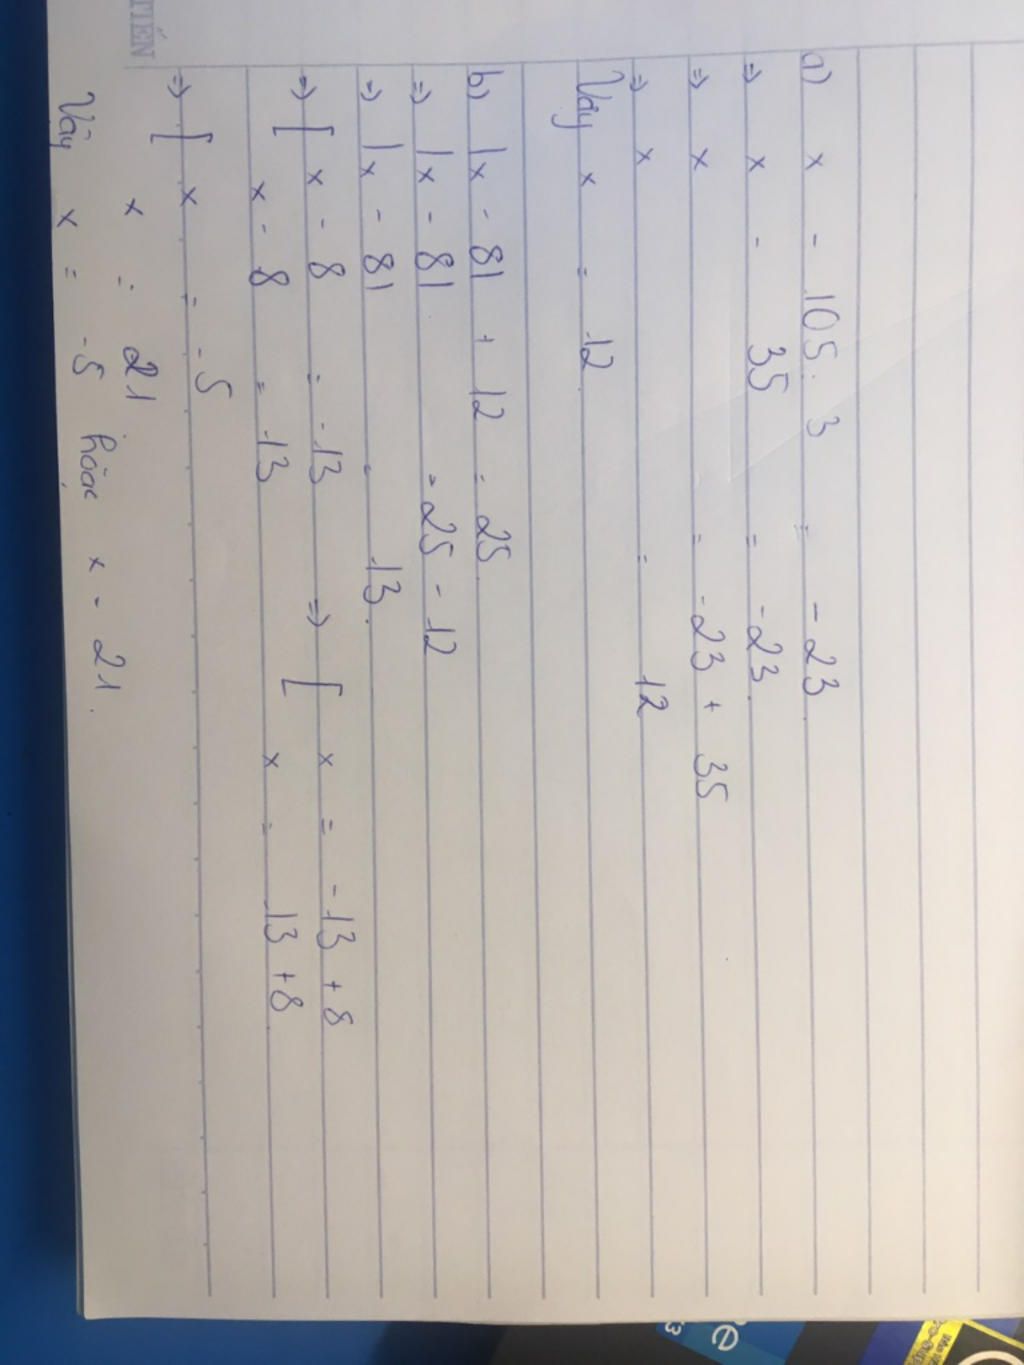 TIẾN
a) x - 105 : 3 = - 23
=> x - 35 = -23.
=> x = -23 + 35
=> x = 12
Vậy x = 12
b) |x - 8| + 12 = 25
=> |x - 8| = 25 - 12
=> |x - 8| = 13.
=> [ x - 8 = -13 => [ x = -13 + 8
x - 8 = 13 x = 13 + 8
=> [ x = -5
x = 21
Vậy x = -5 hoặc x = 21.